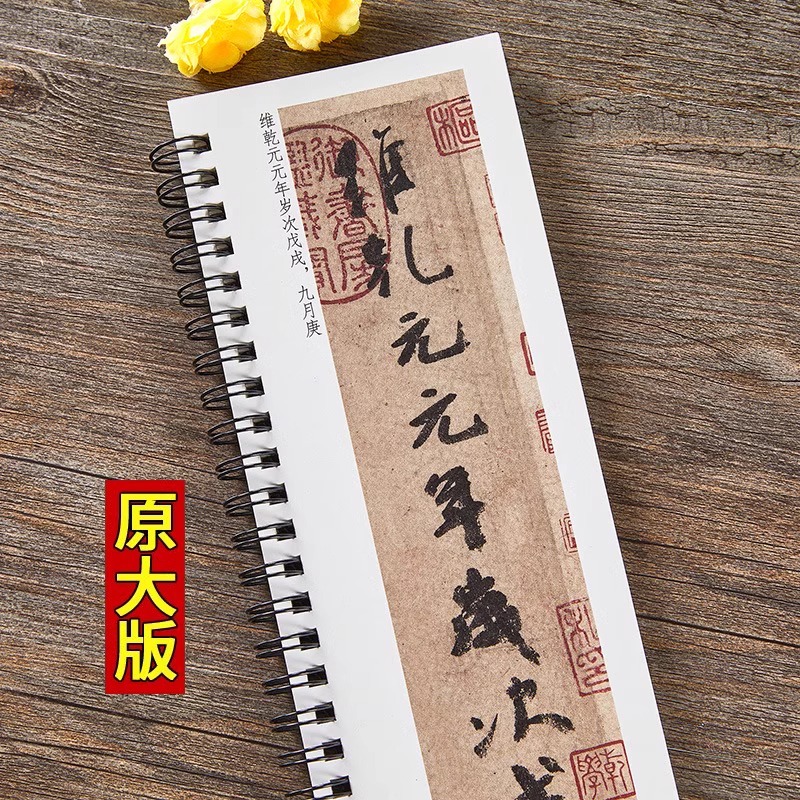 维乾元元年岁次戊戌，九月庚
維乾元元年歲次戊
原大版